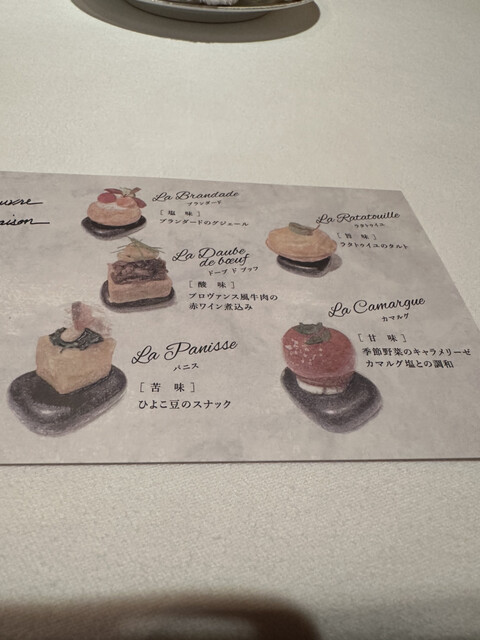 La Brandade
ブランダード
[ 塩 味 ]
ブランダードのグジェール
La Ratatouille
ラタトゥイユ
[ 旨 味 ]
ラタトゥイユのタルト
La Daube
de bœuf
ドーブ ド ブッフ
[ 酸 味 ]
プロヴァンス風牛肉の
赤ワイン煮込み
La Camargue
カマルグ
[ 甘 味 ]
季節野菜のキャラメリーゼ
カマルグ塩との調和
La Panisse
パニス
[ 苦 味 ]
ひよこ豆のスナック